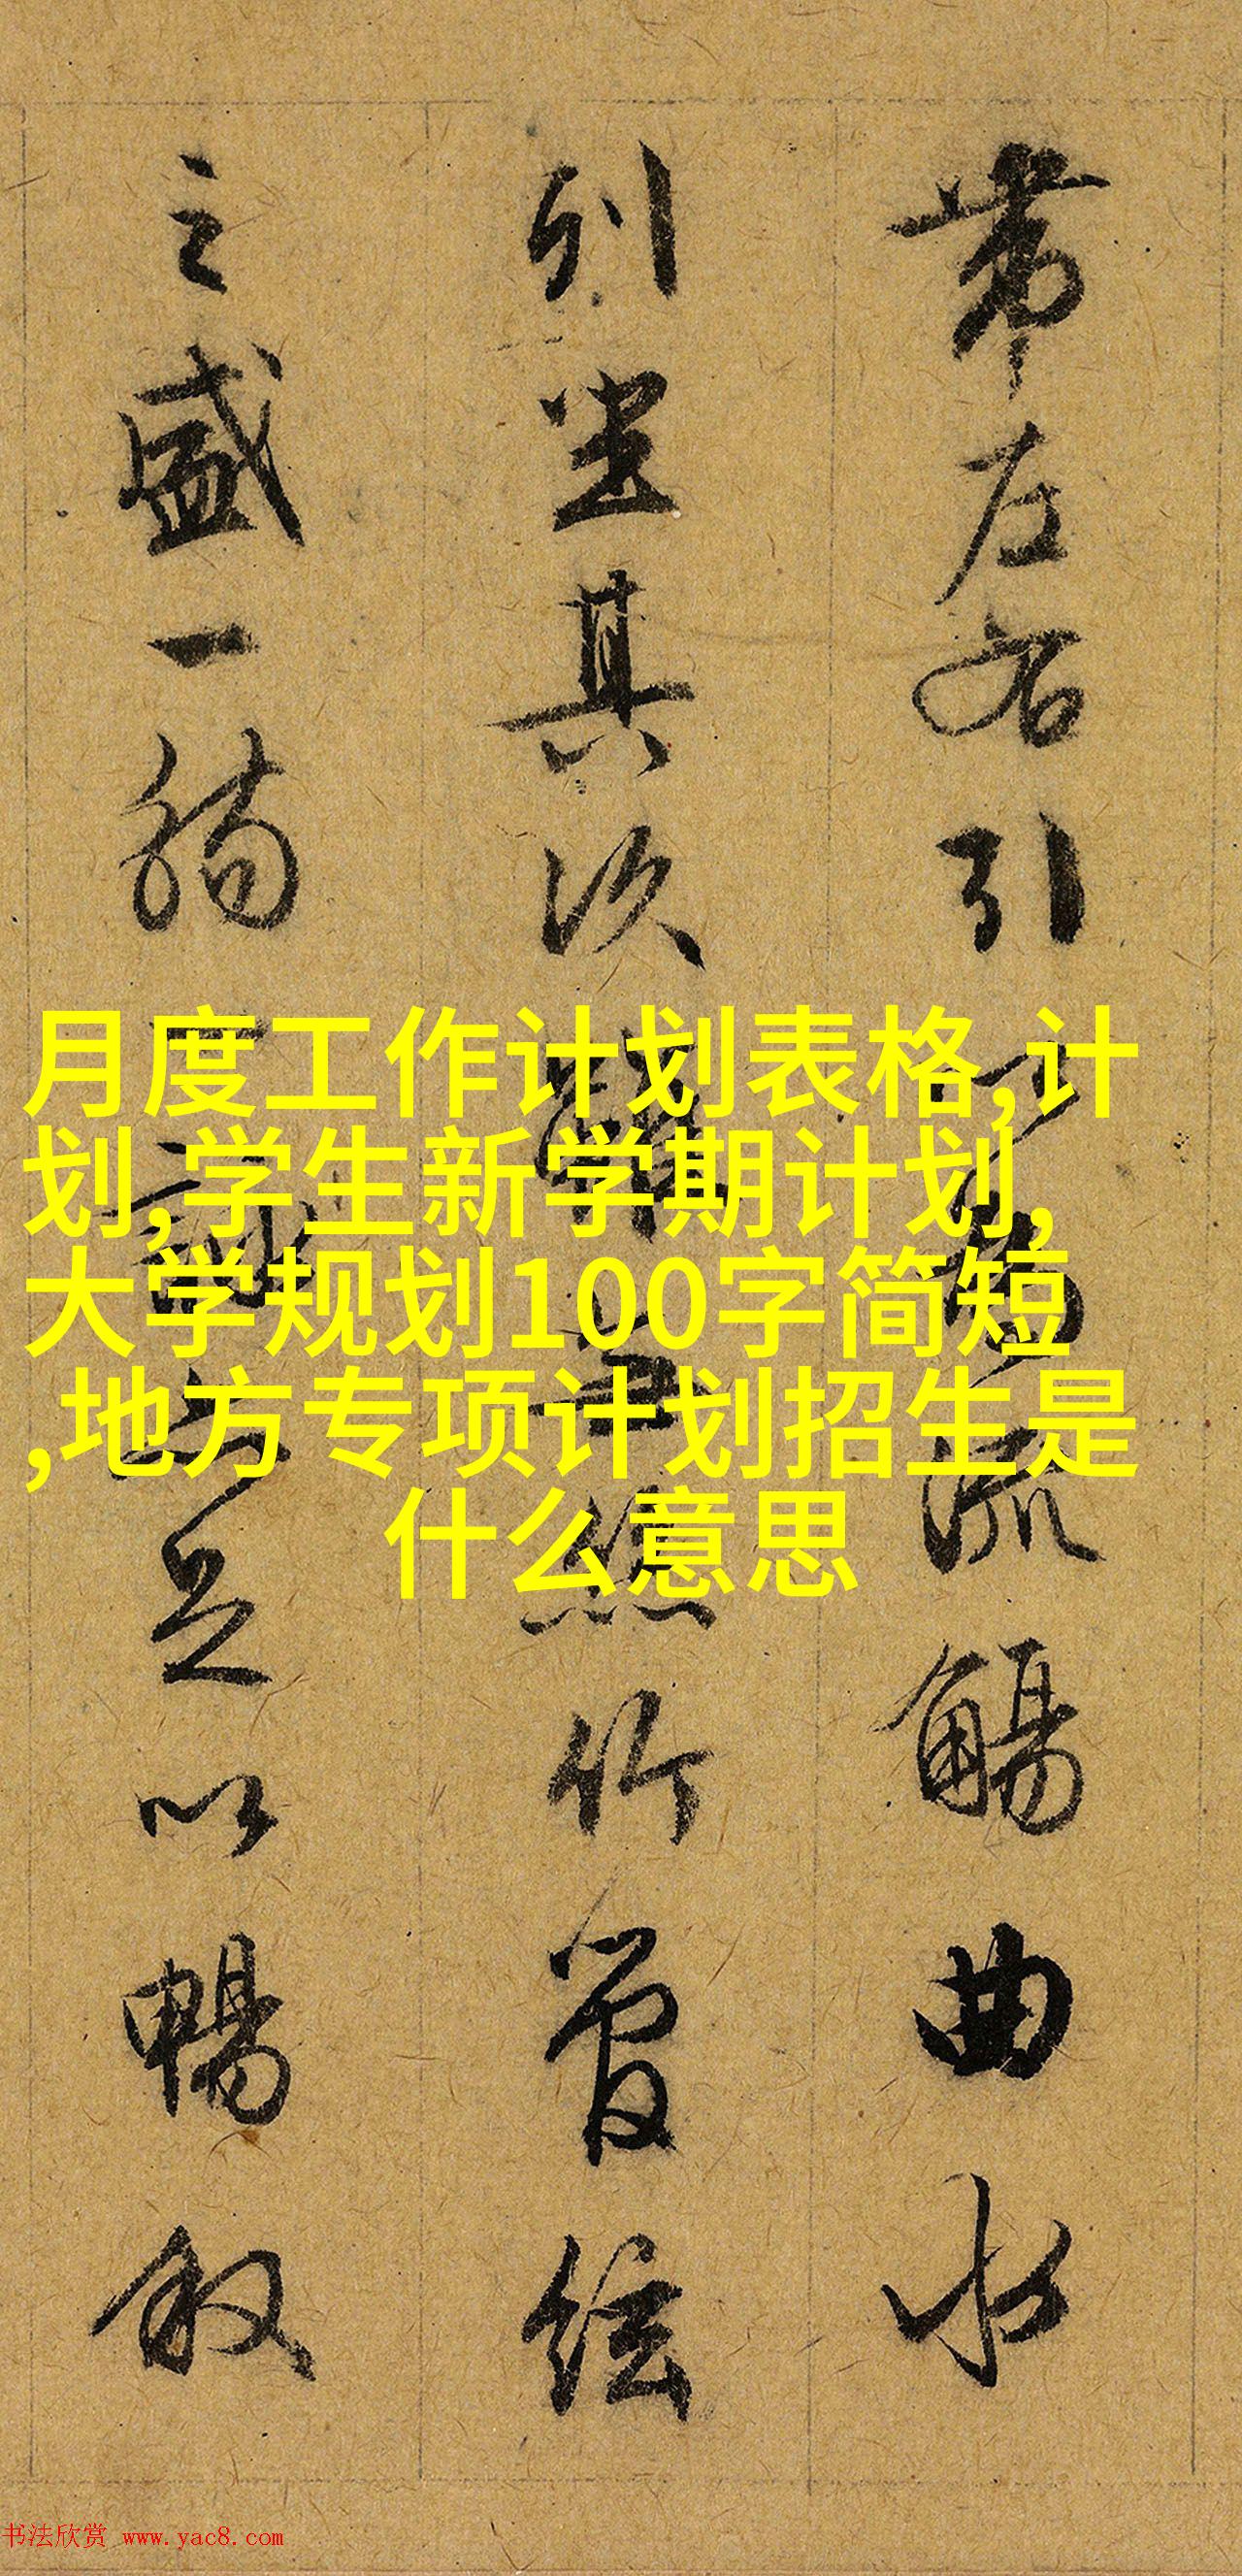 帶左右引流觴曲水
列坐其次竹管絃
之盛一觴足以暢敘
月度工作计划表格,计
划,学生新学期计划,
大学规划100字简短
,地方专项计划招生是
什么意思
书法欣赏 www.yac8.com